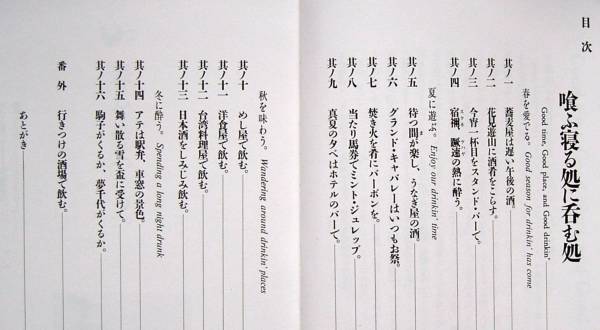 目次
喰ふ寝る処に呑む処
Good time, Good place, and Good drinkin'
春を愛でる。 Good season for drinkin' has come
其ノ一 蕎麦屋は遅い午後の酒。
其ノ二 花見遊山に酒肴をこらす。
其ノ三 今宵一杯目をスタンド・バーで。
其ノ四 宿禰、蹶速の熱に酔う。
夏に遊ぶ。 Enjoy our drinkin' time
其ノ五 待つ間が楽し、うなぎ屋の酒。
其ノ六 グランド・キャバレーはいつもお祭。
其ノ七 焚き火を肴にバーボンを。
其ノ八 当たり馬券でミント・ジュレップ。
其ノ九 真夏の夕べはホテルのバーで。
秋を味わう。 Wandering around drinkin' places
其ノ十 めし屋で飲む。
其ノ十一 洋食屋で飲む。
其ノ十二 台湾料理屋で飲む。
其ノ十三 日本酒をしみじみ飲む。
冬に酔う。 Spending a long night drunk
其ノ十四 アテは駅弁、車窓の景色。
其ノ十五 舞い散る雪を盃に受けて。
其ノ十六 駒子がくるか、夢千代がくるか。
番外 行きつけの酒場で飲む。
あとがき